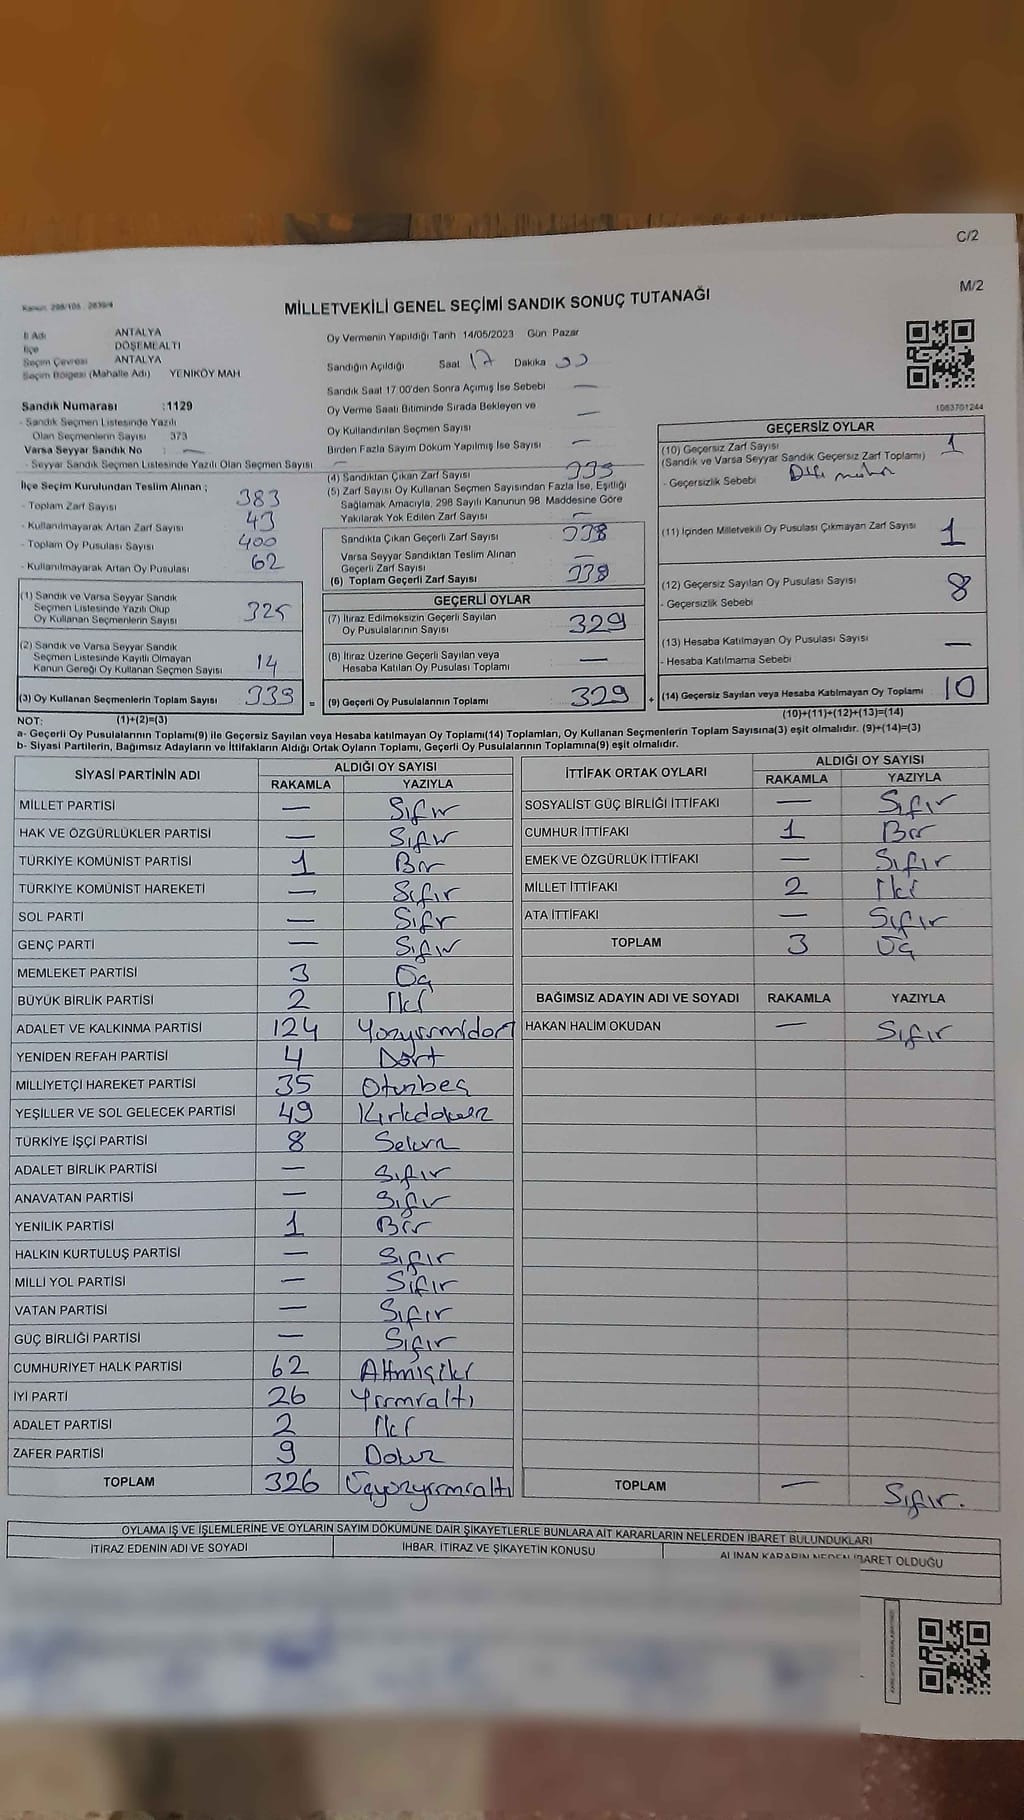 C/2
M/2
Kanun: 298/105 , 2839/4
MİLLETVEKİLİ GENEL SEÇİMİ SANDIK SONUÇ TUTANAĞI
İl Adı ANTALYA
İlçe DÖŞEMEALTI
Seçim Çevresi ANTALYA
Seçim Bölgesi (Mahalle Adı) YENİKÖY MAH
Sandık Numarası :1129
- Sandık Seçmen Listesinde Yazılı
Olan Seçmenlerin Sayısı 373
Varsa Seyyar Sandık No : —
- Seyyar Sandık Seçmen Listesinde Yazılı Olan Seçmen Sayısı —
İlçe Seçim Kurulundan Teslim Alınan ;
- Toplam Zarf Sayısı 383
- Kullanılmayarak Artan Zarf Sayısı 43
- Toplam Oy Pusulası Sayısı 400
- Kullanılmayarak Artan Oy Pusulası 62
(1) Sandık ve Varsa Seyyar Sandık
Seçmen Listesinde Yazılı Olup
Oy Kullanan Seçmenlerin Sayısı 325
(2) Sandık ve Varsa Seyyar Sandık
Seçmen Listesinde Kayıtlı Olmayan
Kanun Gereği Oy Kullanan Seçmen Sayısı 14
(3) Oy Kullanan Seçmenlerin Toplam Sayısı 339 =
Oy Vermenin Yapıldığı Tarih 14/05/2023 Gün: Pazar
Sandığın Açıldığı Saat 17 Dakika 00
Sandık Saat 17:00'den Sonra Açımış İse Sebebi —
Oy Verme Saati Bitiminde Sırada Bekleyen ve
Oy Kullandırılan Seçmen Sayısı —
Birden Fazla Sayım Döküm Yapılmış İse Sayısı —
(4) Sandıktan Çıkan Zarf Sayısı 339
(5) Zarf Sayısı Oy Kullanan Seçmen Sayısından Fazla İse, Eşitliği
Sağlamak Amacıyla, 298 Sayılı Kanunun 98. Maddesine Göre
Yakılarak Yok Edilen Zarf Sayısı —
Sandıkta Çıkan Geçerli Zarf Sayısı 338
Varsa Seyyar Sandıktan Teslim Alınan
Geçerli Zarf Sayısı —
(6) Toplam Geçerli Zarf Sayısı 338
GEÇERLİ OYLAR
(7) İtiraz Edilmeksizin Geçerli Sayılan
Oy Pusulalarının Sayısı 329
(8) İtiraz Üzerine Geçerli Sayılan veya
Hesaba Katılan Oy Pusulası Toplamı —
(9) Geçerli Oy Pusulalarının Toplamı 329 +
1083701244
GEÇERSİZ OYLAR
(10) Geçersiz Zarf Sayısı 1
(Sandık ve Varsa Seyyar Sandık Geçersiz Zarf Toplamı)
- Geçersizlik Sebebi
(11) İçinden Milletvekili Oy Pusulası Çıkmayan Zarf Sayısı 1
(12) Geçersiz Sayılan Oy Pusulası Sayısı 8
- Geçersizlik Sebebi
(13) Hesaba Katılmayan Oy Pusulası Sayısı —
- Hesaba Katılmama Sebebi
(14) Geçersiz Sayılan veya Hesaba Katılmayan Oy Toplamı 10
NOT: (1)+(2)=(3) (10)+(11)+(12)+(13)=(14)
a- Geçerli Oy Pusulalarının Toplamı(9) ile Geçersiz Sayılan veya Hesaba katılmayan Oy Toplamı(14) Toplamları, Oy Kullanan Seçmenlerin Toplam Sayısına(3) eşit olmalıdır. (9)+(14)=(3)
b- Siyasi Partilerin, Bağımsız Adayların ve İttifakların Aldığı Ortak Oyların Toplamı, Geçerli Oy Pusulalarının Toplamına(9) eşit olmalıdır.
SİYASİ PARTİNİN ADI ALDIĞI OY SAYISI
RAKAMLA YAZIYLA
MİLLET PARTİSİ — Sıfır
HAK VE ÖZGÜRLÜKLER PARTİSİ — Sıfır
TÜRKİYE KOMÜNİST PARTİSİ 1 Bir
TÜRKİYE KOMÜNİST HAREKETİ — Sıfır
SOL PARTİ — Sıfır
GENÇ PARTİ — Sıfır
MEMLEKET PARTİSİ 3 Üç
BÜYÜK BİRLİK PARTİSİ 2 İki
ADALET VE KALKINMA PARTİSİ 124 Yüzyirmidört
YENİDEN REFAH PARTİSİ 4 Dört
MİLLİYETÇİ HAREKET PARTİSİ 35 Otuzbeş
YEŞİLLER VE SOL GELECEK PARTİSİ 49 Kırkdokuz
TÜRKİYE İŞÇİ PARTİSİ 8 Sekiz
ADALET BİRLİK PARTİSİ — Sıfır
ANAVATAN PARTİSİ — Sıfır
YENİLİK PARTİSİ 1 Bir
HALKIN KURTULUŞ PARTİSİ — Sıfır
MİLLİ YOL PARTİSİ — Sıfır
VATAN PARTİSİ — Sıfır
GÜÇ BİRLİĞİ PARTİSİ — Sıfır
CUMHURİYET HALK PARTİSİ 62 Altmışiki
İYİ PARTİ 26 Yirmialtı
ADALET PARTİSİ 2 İki
ZAFER PARTİSİ 9 Dokuz
TOPLAM 326 Üçyüzyirmialtı
İTTİFAK ORTAK OYLARI ALDIĞI OY SAYISI
RAKAMLA YAZIYLA
SOSYALİST GÜÇ BİRLİĞİ İTTİFAKI — Sıfır
CUMHUR İTTİFAKI 1 Bir
EMEK VE ÖZGÜRLÜK İTTİFAKI — Sıfır
MİLLET İTTİFAKI 2 İki
ATA İTTİFAKI — Sıfır
TOPLAM 3 Üç
BAĞIMSIZ ADAYIN ADI VE SOYADI RAKAMLA YAZIYLA
HAKAN HALİM OKUDAN — Sıfır
TOPLAM — Sıfır.
OYLAMA İŞ VE İŞLEMLERİNE VE OYLARIN SAYIM DÖKÜMÜNE DAİR ŞİKAYETLERLE BUNLARA AİT KARARLARIN NELERDEN İBARET BULUNDUKLARI
İTİRAZ EDENİN ADI VE SOYADI İHBAR, İTİRAZ VE ŞİKAYETİN KONUSU ALINAN KARARIN NEDEN İBARET OLDUĞU